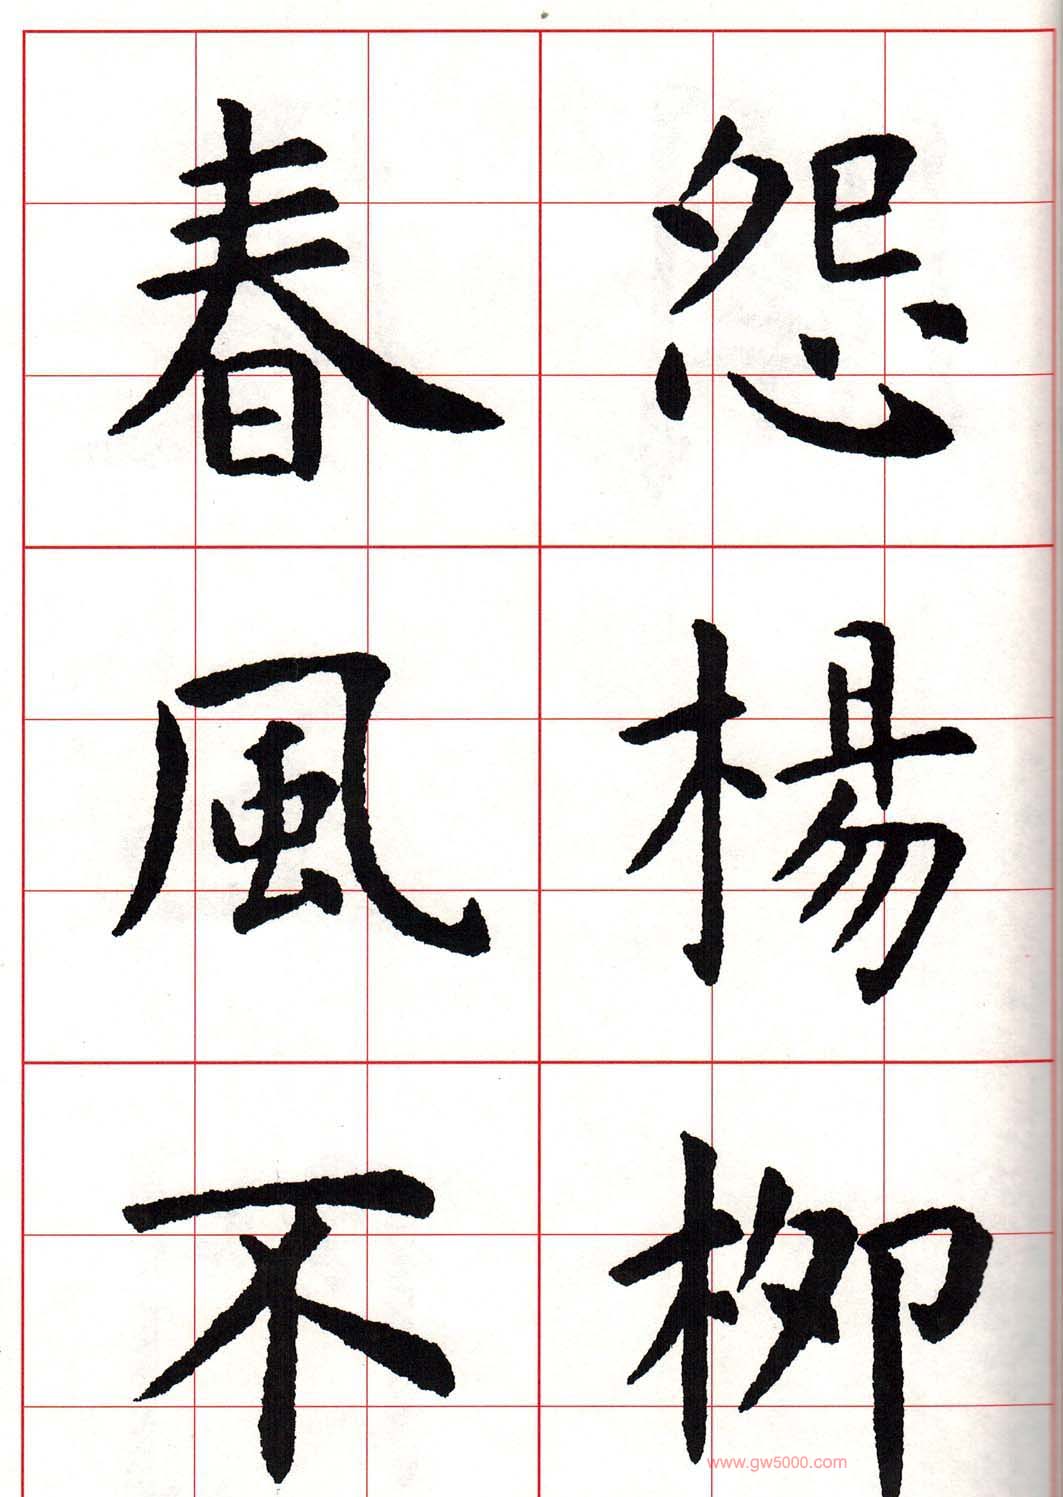 怨楊柳
春風不
www.gw5000.com